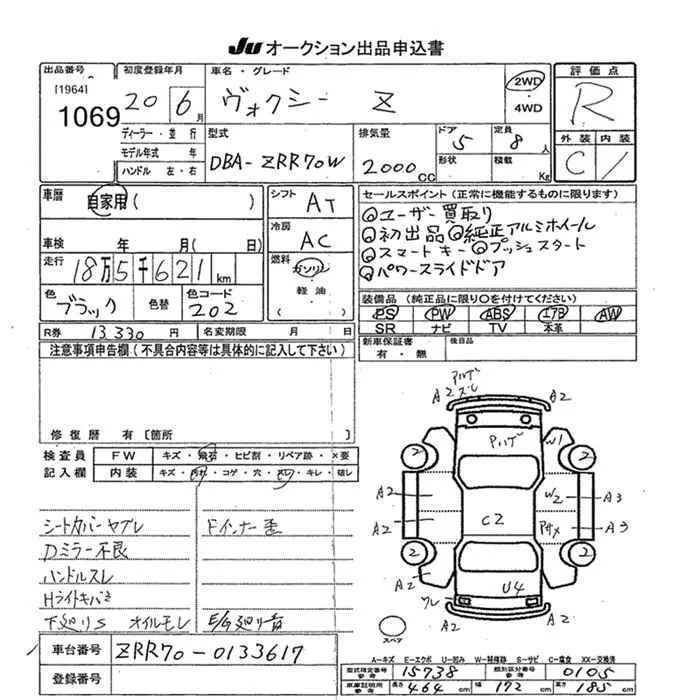 JU オークション出品申込書
出品番号 初度登録年月 車名・グレード 評価点
[1964] 1069 20 6月 ヴォクシー Z 2WD ・4WD R
ディーラー・並行 型式 排気量 ドア 定員 外装 内装
モデル年式 年 DBA-ZRR70W 2000cc 5 8人 C 1
ハンドル 左・右 形状 積載 Kg
車歴 自家用( ) シフト AT セールスポイント(正常に機能するものに限ります)
ユーザー買取り
初出品 純正アルミホイール
スマートキー プッシュスタート
パワースライドドア
車検 年 月(日) 冷房 AC
走行 18万5千621km 燃料 ガソリン 軽油
色 ブラック 色替 色コード 202 ( )
装備品(純正品に限り○を付けてください)
PS PW ABS エアB AW
SR ナビ TV 本革
R券 13,330円 名変期限 月 日
新車保証書 有・無 後日品
注意事項申告欄(不具合内容等は具体的に記入して下さい)
修復歴 有〔箇所
検査員 FW キズ・飛石・ヒビ割・リペア跡・×要
記入欄 内装 キズ・汚れ・コゲ・穴・スレ・キレ・破レ
シートカバーヤブレ Fインナー歪
Dミラー不良
ハンドルスレ
Hライトキバミ
下廻りS オイルモレ E/G廻り音
ハルゲ
A2 ズレ A2
ハルゲ W1
2 2
A2 W2 A3
A2 C2 A3
2 2
A2 U4 A2
ワレ
A2 A2
スペア
A-キズ E-エクボ U-凹み W-補修跡 S-サビ C-腐食 XX-交換済
車台番号 ZRR70-0133617
登録番号
型式指定番号 参考 15738 類別区分番号 参考 0105
車庫証明用 参考 長さ 464cm 幅 172cm 高さ 185cm